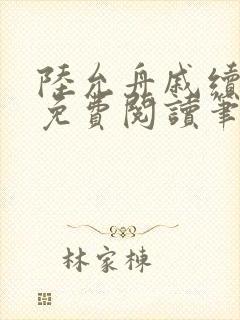 陸允舟戚續
免費閱讀筆
林家棟